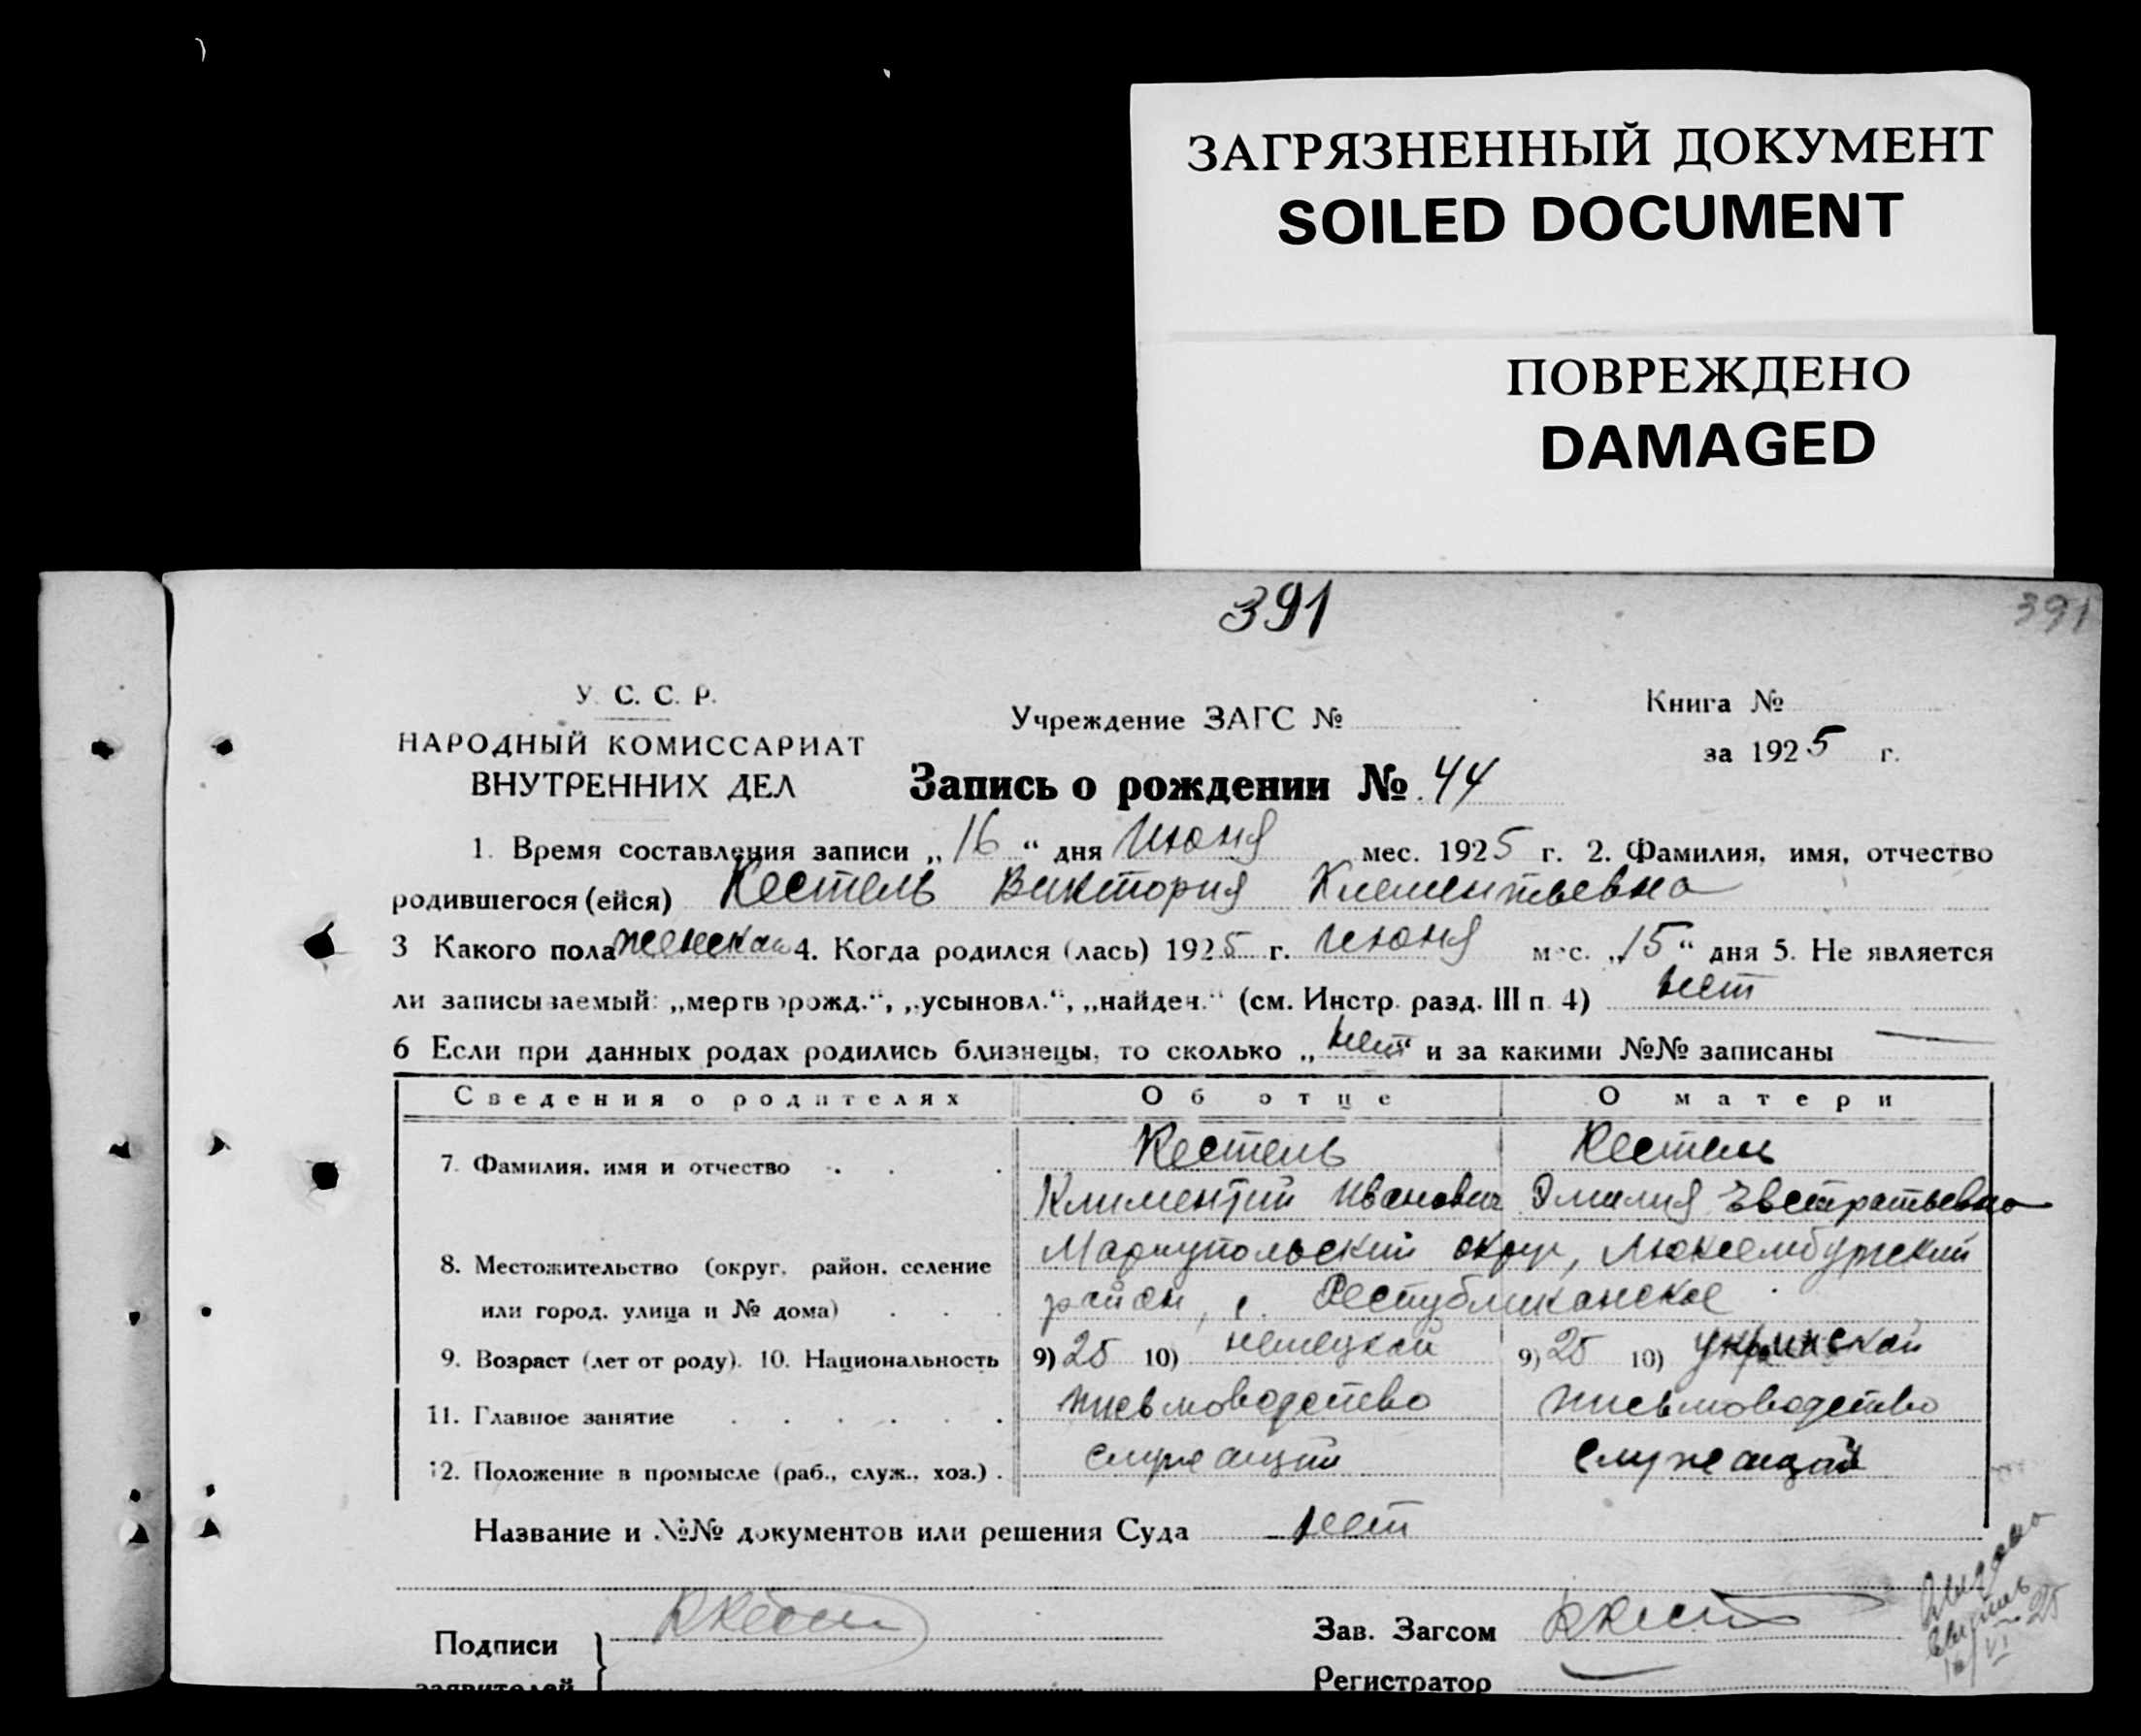 ЗАГРЯЗНЕННЫЙ ДОКУМЕНТ
SOILED DOCUMENT
ПОВРЕЖДЕНО
DAMAGED
391
391
У. С. С. Р.
НАРОДНЫЙ КОМИССАРИАТ
ВНУТРЕННИХ ДЕЛ
Учреждение ЗАГС №
Книга №
за 1925 г.
Запись о рождении № 44
1. Время составления записи „16“ дня Июня мес. 1925 г. 2. Фамилия, имя, отчество
родившегося (ейся) Кестель Виктория Клементьевна
3 Какого пола женская 4. Когда родился (лась) 1925 г. июня мес. „15“ дня 5. Не является
ли записываемый: „мертворожд.“, „усыновл.“, „найден.“ (см. Инстр. разд. III п. 4) нет
6 Если при данных родах родились близнецы, то сколько „нет“ и за какими №№ записаны —
Сведения о родителях Об отце О матери
7. Фамилия, имя и отчество . . . Кестель Кестель
Климентий Иванович Эмилия Евстратьевна
8. Местожительство (округ, район, селение Мариупольский округ, Люксембургский
или город, улица и № дома) . . . район, с. Республиканское
9. Возраст (лет от роду). 10. Национальность 9) 25 10) немецкой 9) 25 10)
11. Главное занятие . . . . . . письмоводство письмоводство
12. Положение в промысле (раб., служ., хоз.) . служащий служащая
Название и №№ документов или решения Суда нет
Подписи
заявителей
Зав. Загсом
Регистратор